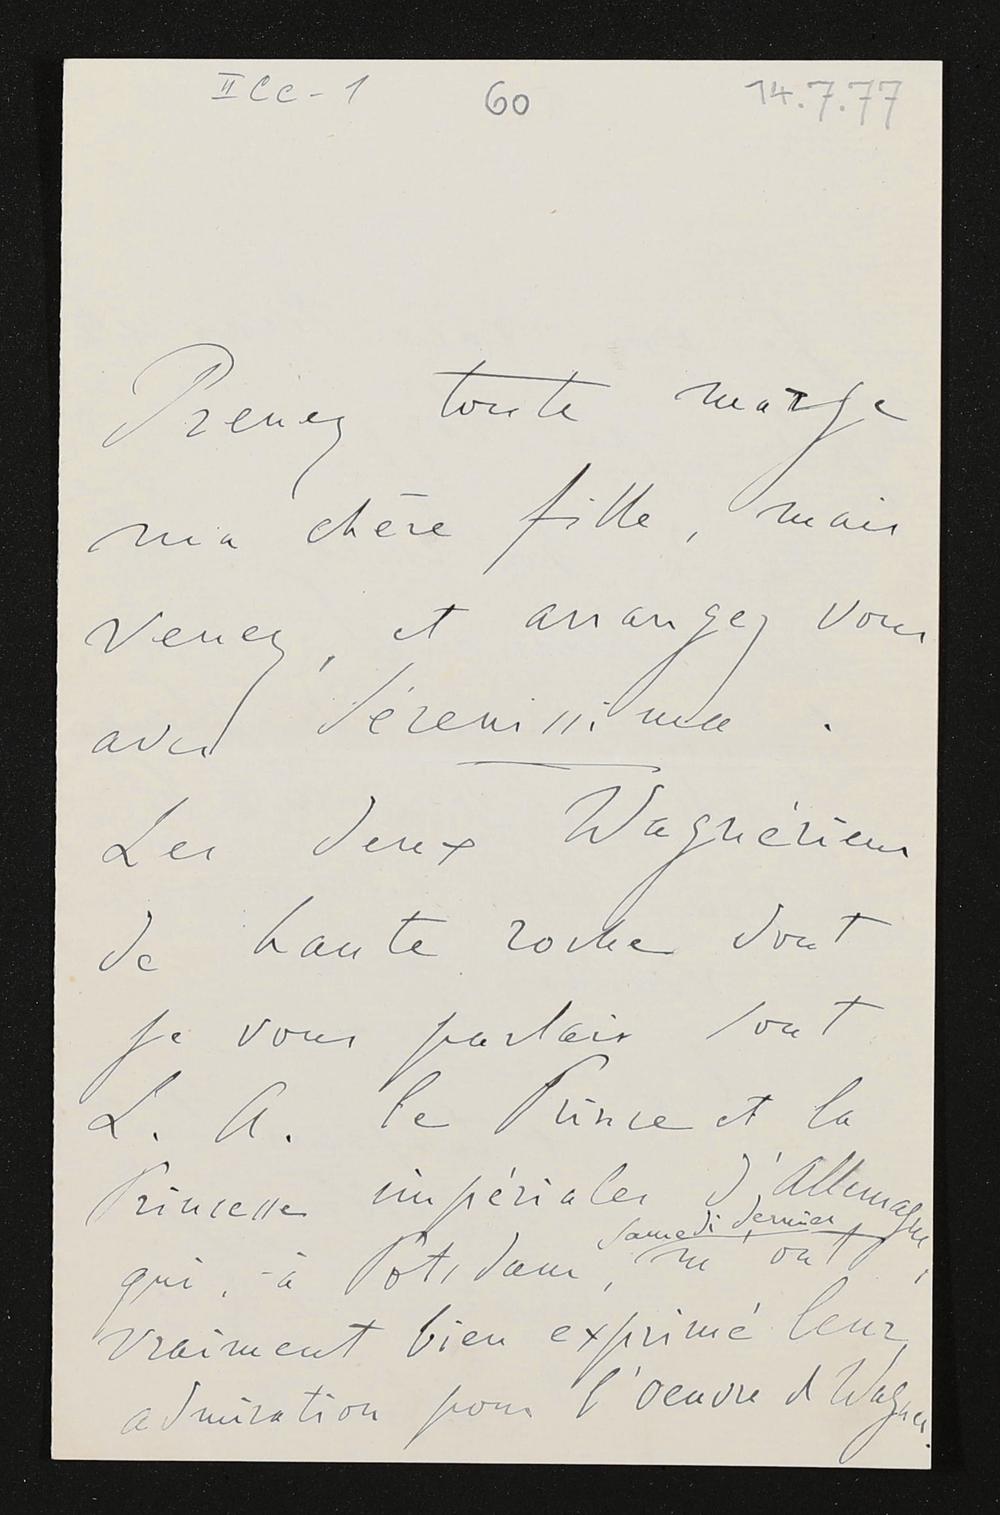 II Cc - 1 60 14.7.77
Prenez toute marge
ma chère fille, mais
venez, et arrangez vous
avec Sérenissime.
Les deux Wagnériens
de haute roche dont
je vous parlais sont
L. A. le Prince et la
Princesse impériales d'Allemagne,
samedi dernier
qui, à Potsdam, m'ont
vraiment bien exprimé leur
admiration pour l'oeuvre d Wagner.